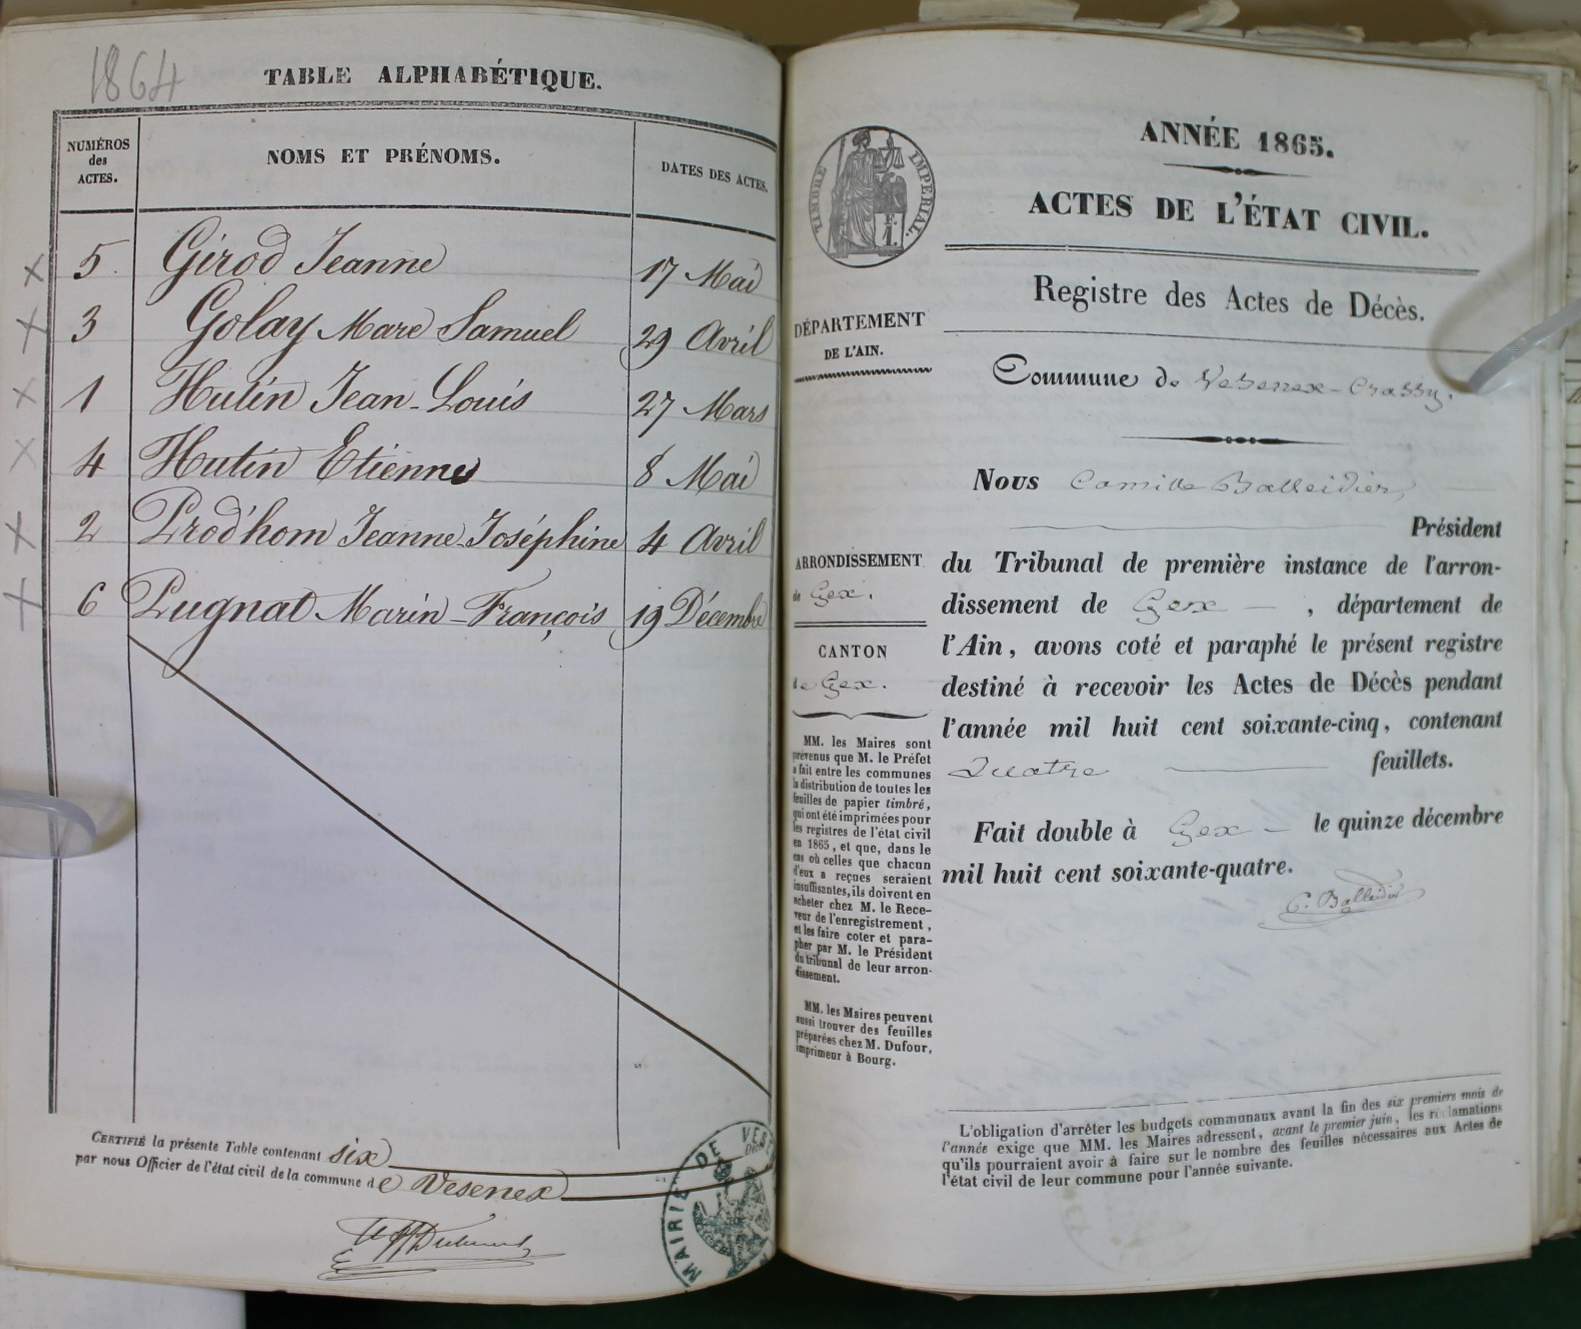 1864
TABLE ALPHABÉTIQUE.
NUMÉROS des ACTES.
NOMS ET PRÉNOMS.
DATES DES ACTES.
5 Girod Jeanne 17 Mai
3 Golay Marc Samuel 29 Avril
1 Hutin Jean-Louis 27 Mars
4 Hutin Etienne 8 Mai
2 Prod'hom Jeanne-Joséphine 4 Avril
6 Pugnat Marin-François 19 Décembre
CERTIFIÉ la présente Table contenant six
par nous Officier de l'état civil de la commune de Vesenex
MAIRIE DE VESE
TIMBRE IMPÉRIAL.
ANNÉE 1865.
ACTES DE L'ÉTAT CIVIL.
Registre des Actes de Décès.
DÉPARTEMENT
DE L'AIN.
Commune de Vesenex-Crassy.
Nous Camille Balleidier,
Président
ARRONDISSEMENT
de Gex.
CANTON
de Gex.
du Tribunal de première instance de l'arron-
dissement de Gex, département de
l'Ain, avons coté et paraphé le présent registre
destiné à recevoir les Actes de Décès pendant
l'année mil huit cent soixante-cinq, contenant
Quatre feuillets.
Fait double à Gex le quinze décembre
mil huit cent soixante-quatre.
C. Balleidier
MM. les Maires sont
prévenus que M. le Préfet
a fait entre les communes
la distribution de toutes les
feuilles de papier timbré,
qui ont été imprimées pour
les registres de l'état civil
en 1865, et que, dans le
cas où celles que chacun
d'eux a reçues seraient
insuffisantes, ils doivent en
acheter chez M. le Rece-
veur de l'enregistrement,
et les faire coter et para-
pher par M. le Président
du tribunal de leur arron-
dissement.
MM. les Maires peuvent
aussi trouver des feuilles
préparées chez M. Dufour,
imprimeur à Bourg.
L'obligation d'arrêter les budgets communaux avant la fin des six premiers mois de
l'année exige que MM. les Maires adressent, avant le premier juin, les réclamations
qu'ils pourraient avoir à faire sur le nombre des feuilles nécessaires aux Actes de
l'état civil de leur commune pour l'année suivante.